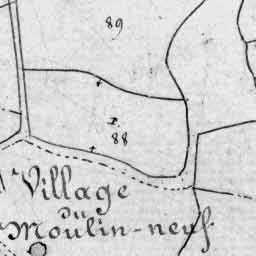 89
88
Village
du
Moulin-neuf.